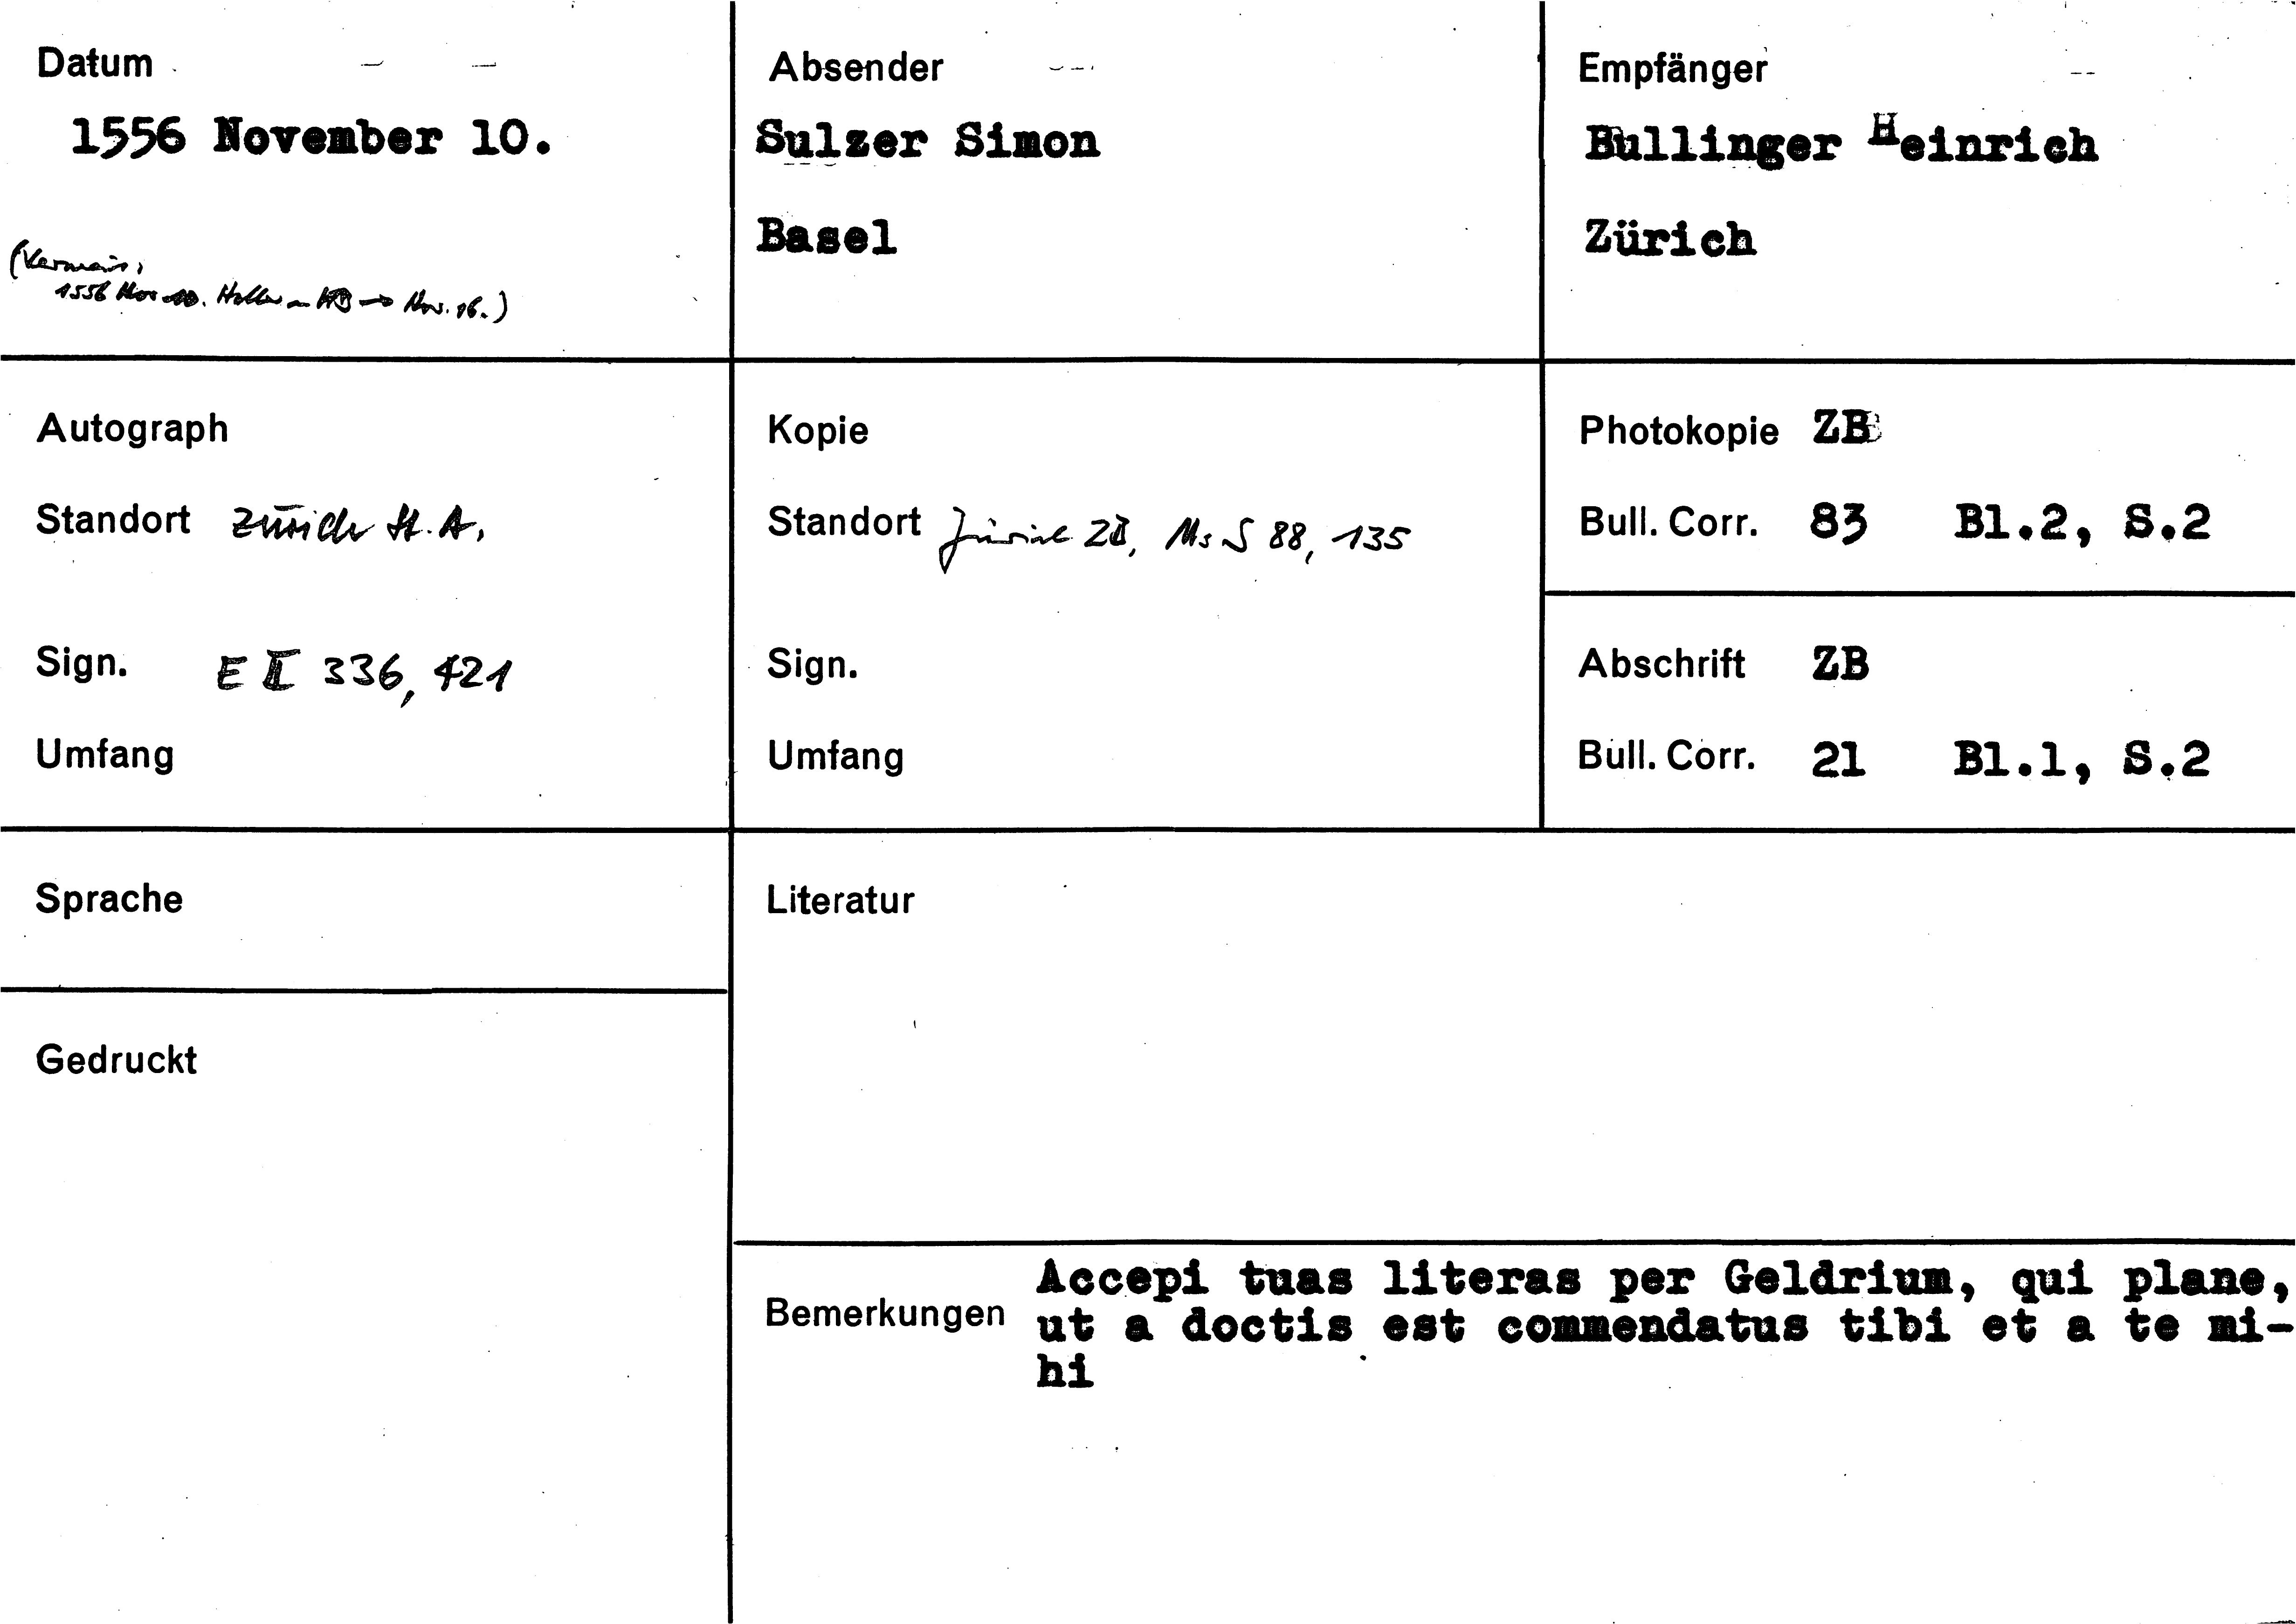 Datum
1556 November 10.
1556 Nov 10. Haller an HB → Nov. 16.)
Absender
Sulzer Simon
Basel
Empfänger
Bullinger Heinrich
Zürich
Autograph
Standort Zürich St. A.
Sign. E II 336, 421
Umfang
Kopie
Standort Zürich ZB, Ms S 88, 135
Sign.
Umfang
Photokopie ZB
Bull. Corr. 83 Bl.2, S.2
Abschrift ZB
Bull. Corr. 21 Bl.1, S.2
Sprache
Gedruckt
Literatur
Bemerkungen
Accepi tuas literas per Geldrium, qui plane,
ut a doctis est commendatus tibi et a te mi-
hi